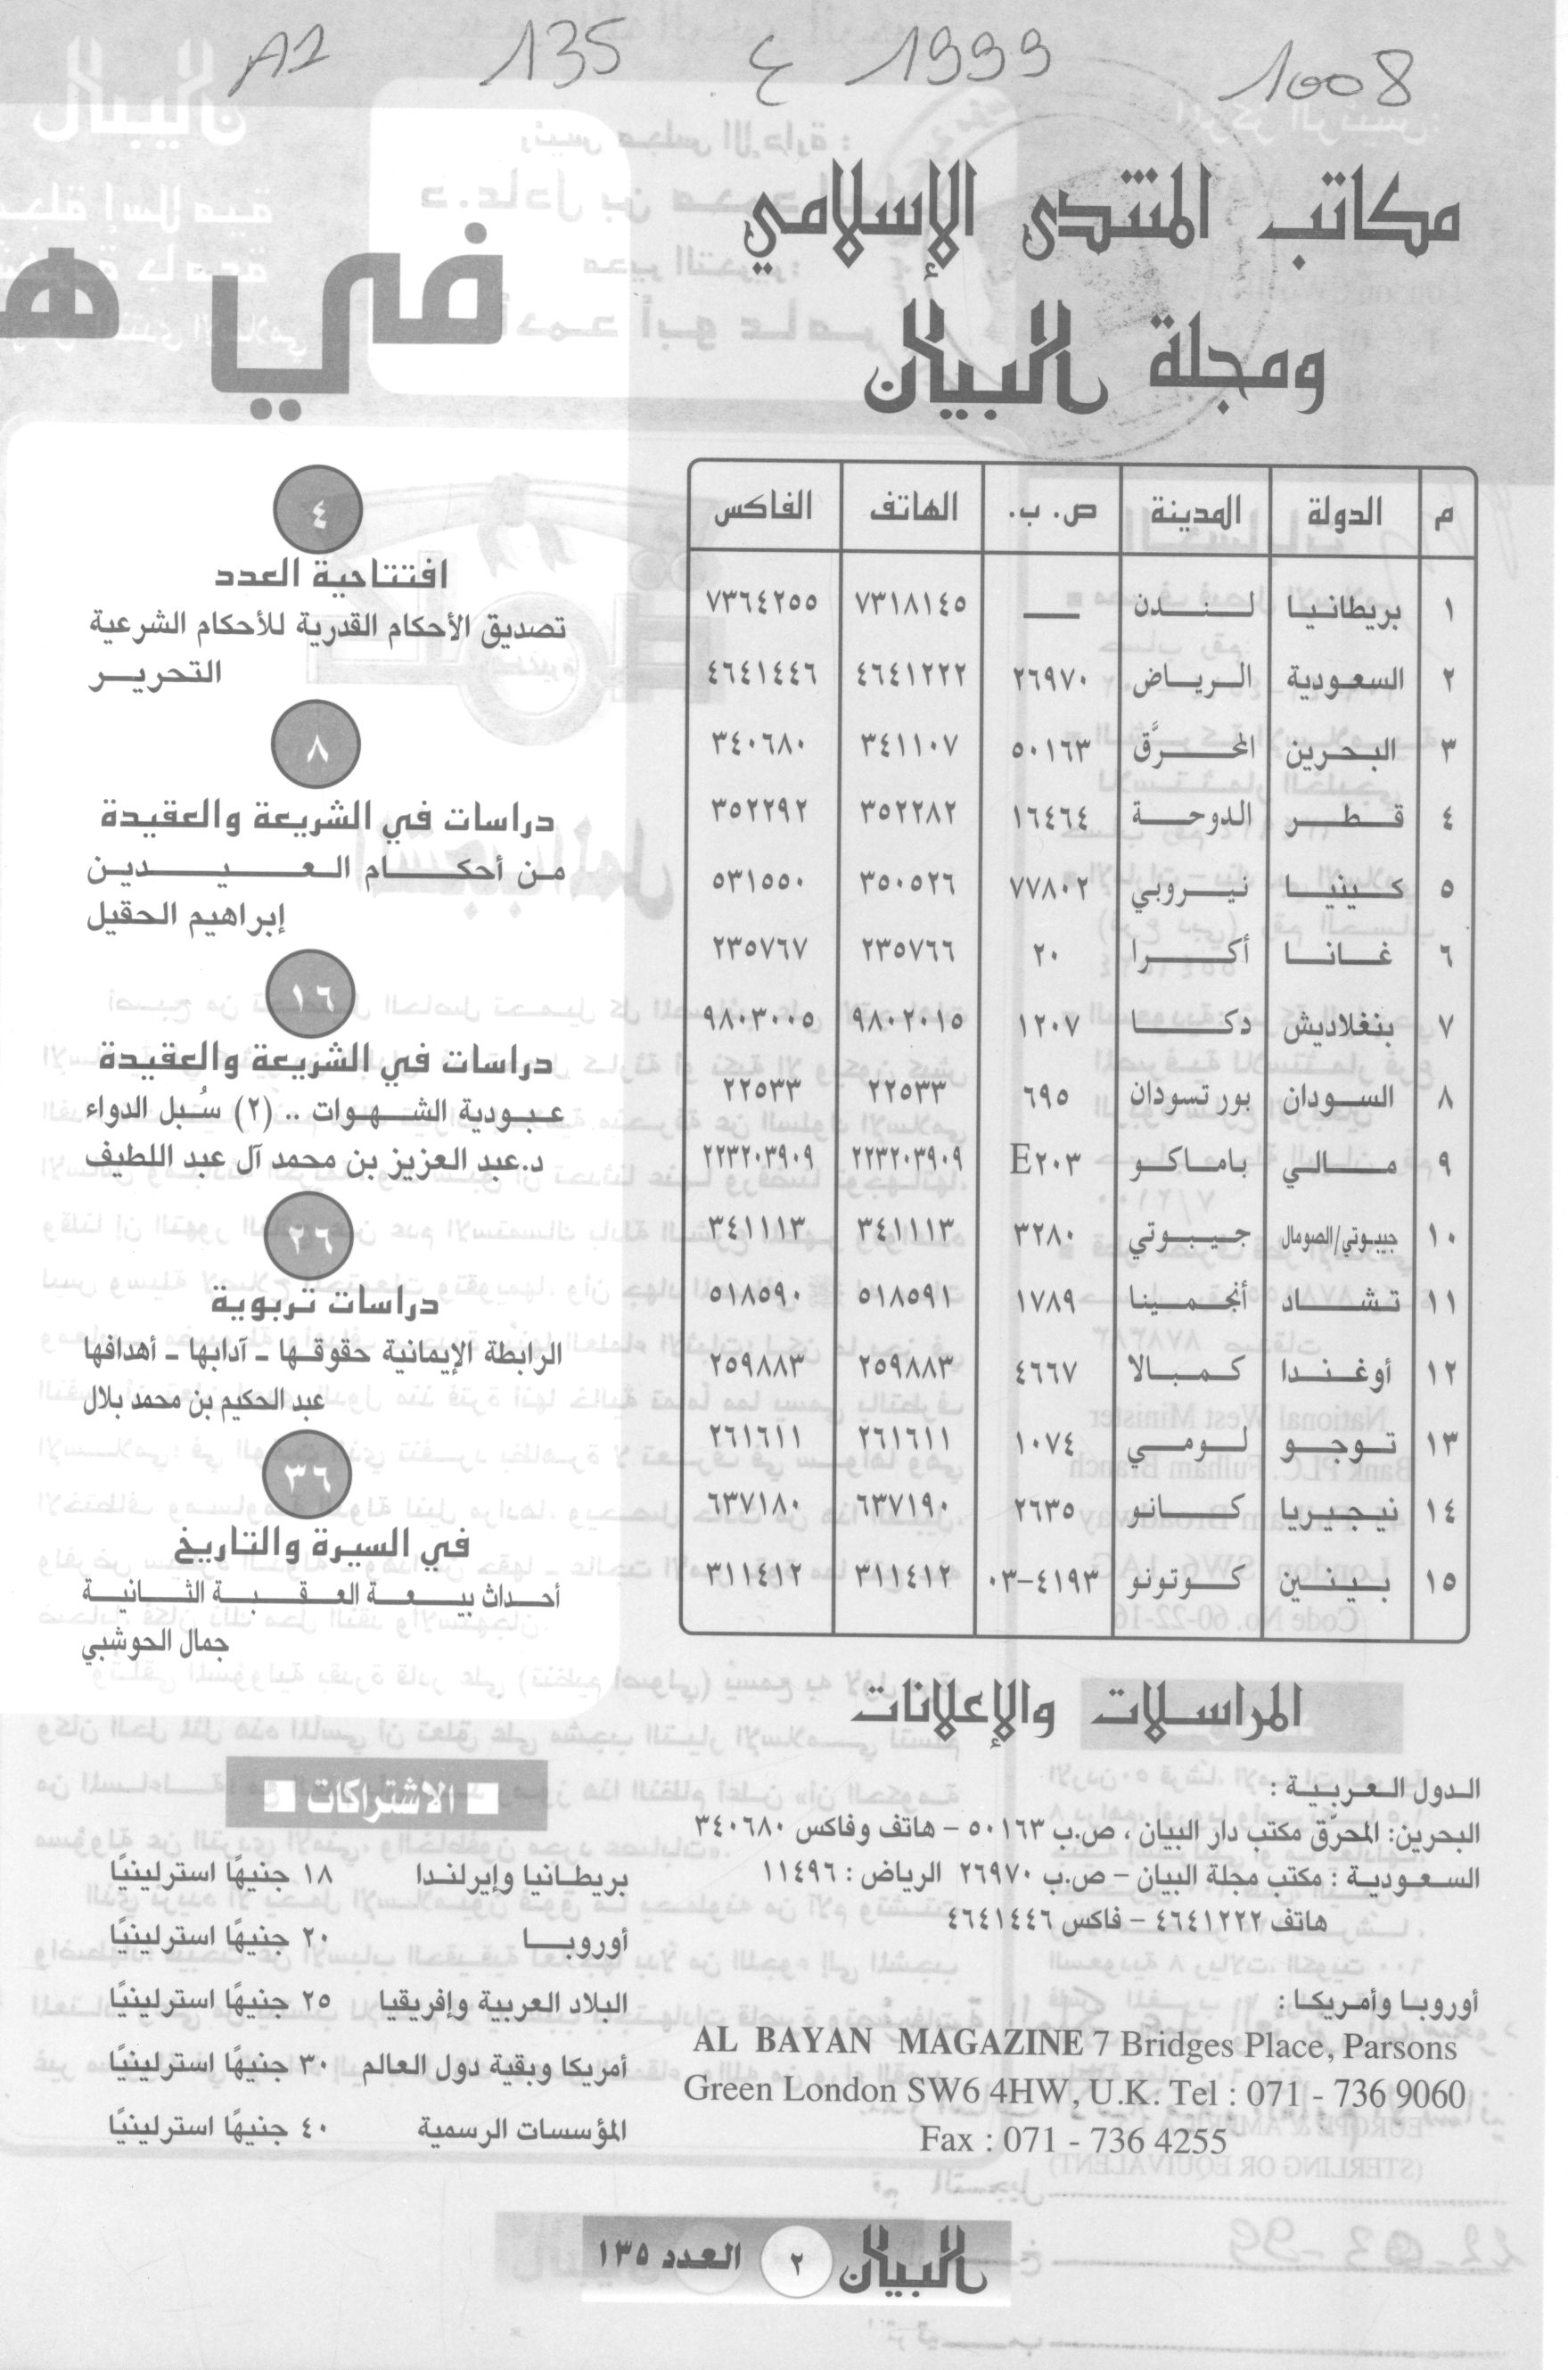 A1 135 ع 1999 1008
مكاتب المنتدى الإسلامي
ومجلة البيان
م الدولة المدينة ص. ب. الهاتف الفاكس
١ بريطانيا لندن — ٧٣١٨١٤٥ ٧٣٦٤٢٥٥
٢ السعودية الرياض ٢٦٩٧٠ ٤٦٤١٢٢٢ ٤٦٤١٤٤٦
٣ البحرين المحرَّق ٥٠١٦٣ ٣٤١١٠٧ ٣٤٠٦٨٠
٤ قطر الدوحة ١٦٤٦٤ ٣٥٢٢٨٢ ٣٥٢٢٩٢
٥ كينيا نيروبي ٧٧٨٠٢ ٣٥٠٥٢٦ ٥٣١٥٥٠
٦ غانا أكرا ٢٠ ٢٣٥٧٦٦ ٢٣٥٧٦٧
٧ بنغلاديش دكا ١٢٠٧ ٩٨٠٢٠١٥ ٩٨٠٣٠٠٥
٨ السودان بور تسودان ٦٩٥ ٢٢٥٣٣ ٢٢٥٣٣
٩ مالي باماكو E٢٠٣ ٢٢٣٢٠٣٩٠٩ ٢٢٣٢٠٣٩٠٩
١٠ جيبوتي/الصومال جيبوتي ٣٢٨٠ ٣٤١١١٣ ٣٤١١١٣
١١ تشاد أنجمينا ١٧٨٩ ٥١٨٥٩١ ٥١٨٥٩٠
١٢ أوغندا كمبالا ٤٦٦٧ ٢٥٩٨٨٣ ٢٥٩٨٨٣
١٣ توجو لومي ١٠٧٤ ٢٦١٦١١ ٢٦١٦١١
١٤ نيجيريا كانو ٢٦٣٥ ٦٣٧١٩٠ ٦٣٧١٨٠
١٥ بينين كوتونو ٤١٩٣-٠٣ ٣١١٤١٢ ٣١١٤١٢
المراسلات والإعلانات
الدول العربية :
البحرين: المحرّق مكتب دار البيان ، ص.ب ٥٠١٦٣ - هاتف وفاكس ٣٤٠٦٨٠
السعودية : مكتب مجلة البيان - ص.ب ٢٦٩٧٠ الرياض : ١١٤٩٦
هاتف ٤٦٤١٢٢٢ - فاكس ٤٦٤١٤٤٦
أوروبا وأمريكا :
AL BAYAN MAGAZINE 7 Bridges Place, Parsons
Green London SW6 4HW, U.K. Tel : 071 - 736 9060
Fax : 071 - 736 4255
في
٤
افتتاحية العدد
تصديق الأحكام القدرية للأحكام الشرعية
التحرير
٨
دراسات في الشريعة والعقيدة
من أحكام العيدين
إبراهيم الحقيل
١٦
دراسات في الشريعة والعقيدة
عبودية الشهوات .. (٢) سُبل الدواء
د.عبد العزيز بن محمد آل عبد اللطيف
٢٦
دراسات تربوية
الرابطة الإيمانية حقوقها - آدابها - أهدافها
عبد الحكيم بن محمد بلال
٣٦
في السيرة والتاريخ
أحداث بيعة العقبة الثانية
جمال الحوشبي
الاشتراكات
بريطانيا وإيرلندا ١٨ جنيهًا استرلينيًا
أوروبا ٢٠ جنيهًا استرلينيًا
البلاد العربية وإفريقيا ٢٥ جنيهًا استرلينيًا
أمريكا وبقية دول العالم ٣٠ جنيهًا استرلينيًا
المؤسسات الرسمية ٤٠ جنيهًا استرلينيًا
البيان ٢ العدد ١٣٥